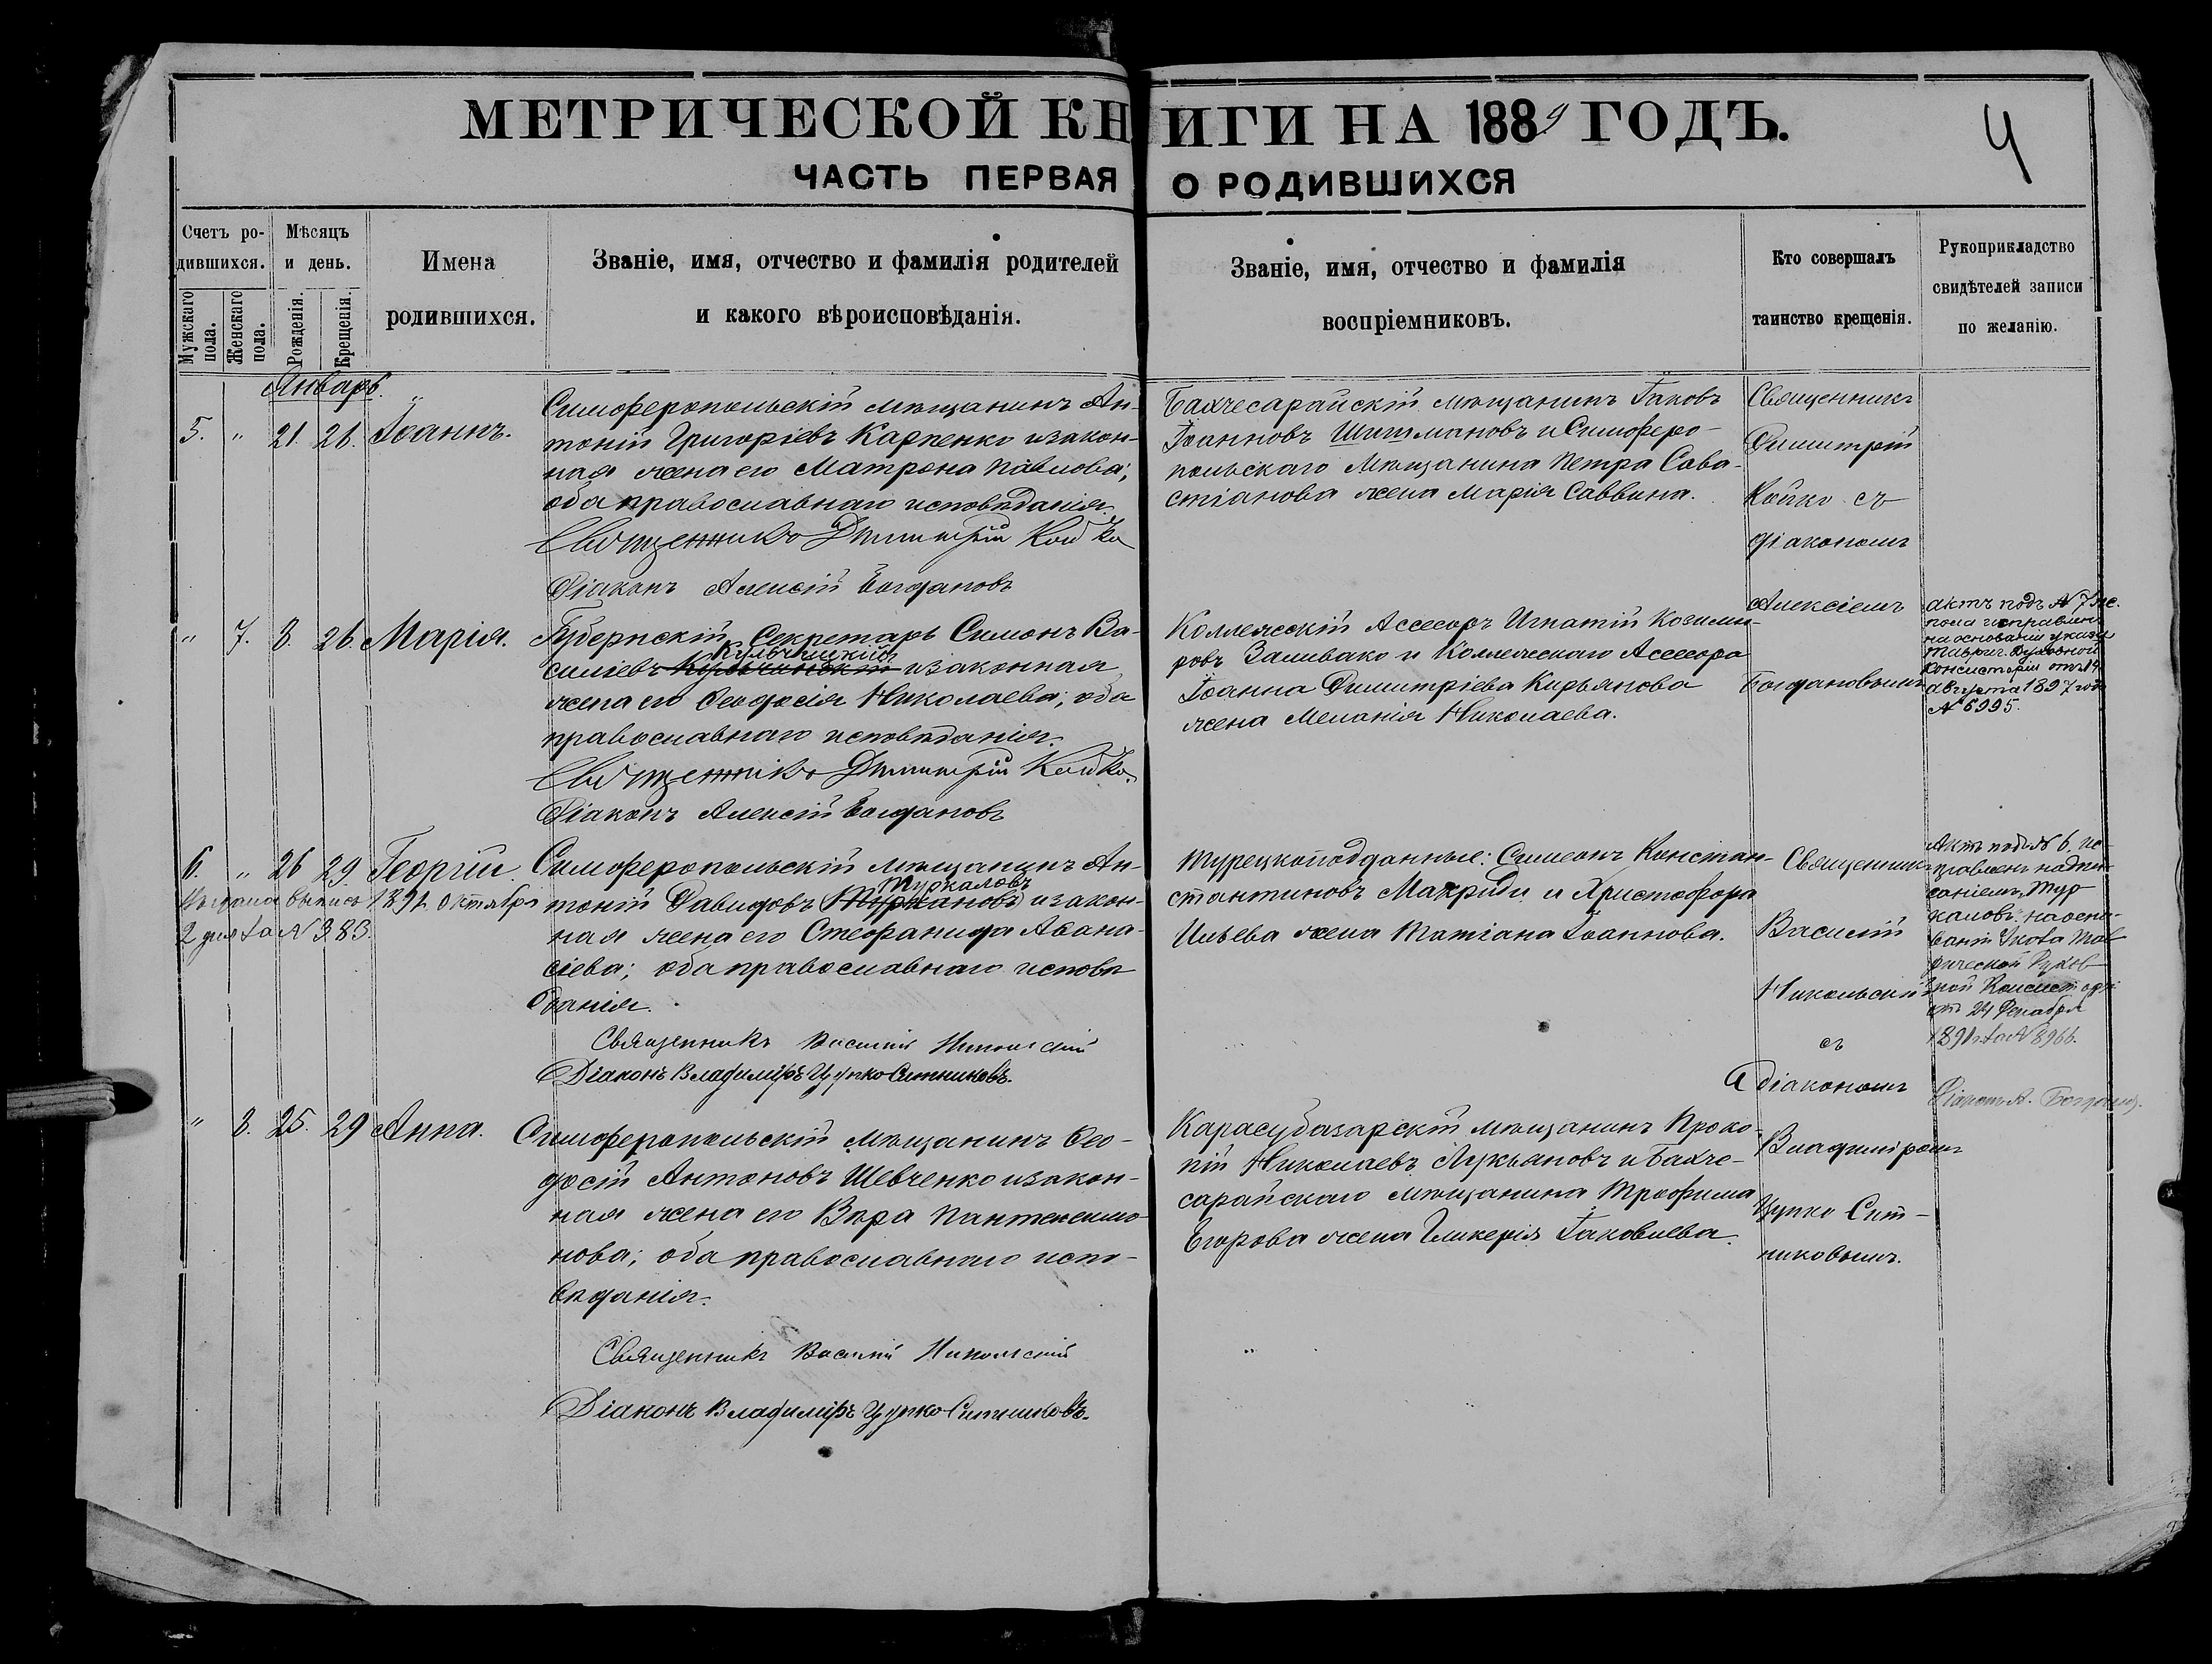 МЕТРИЧЕСКОЙ КНИГИ НА 1889 ГОДЪ.
4
ЧАСТЬ ПЕРВАЯ О РОДИВШИХСЯ
Счетъ ро-
дившихся.
Мужскаго пола.
Женскаго пола.
Мѣсяцъ
и день.
Рожденія.
Крещенія.
Имена
родившихся.
Званіе, имя, отчество и фамилія родителей
и какого вѣроисповѣданія.
Званіе, имя, отчество и фамилія
воспріемниковъ.
Кто совершалъ
таинство крещенія.
Рукоприкладство
свидѣтелей записи
по желанію.
Январь.
5. " 21. 26. Іоаннъ.
Симферопольскій мѣщанинъ Ан-
тоній Григоріевъ Карпенко и закон-
ная жена его Матрона Павлова;
оба православнаго исповѣданія.
Священникъ Димитрій Койко
Діаконъ Алексій Богдановъ
Бахчесарайскій мѣщанинъ Іаковъ
Іоанновъ Шишмановъ и Симферо-
польскаго мѣщанина Петра Сава-
стіанова жена Марія Саввина.
Священникъ
Димитрій
Койко съ
діакономъ
Алексіемъ
Богдановымъ
" 7. 8. 26. Марія.
Губернскій Секретарь Симонъ Ва-
Кульчицкій
силіевъ и законная
жена его Ѳеодосія Николаева; оба
православнаго исповѣданія.
Священникъ Димитрій Койко.
Діаконъ Алексій Богдановъ
Коллежскій Ассесоръ Игнатій Козьми-
ровъ Заливако и Коллежскаго Ассесора
Іоанна Димитріева Кирьянова
жена Меланія Николаева.
актъ подъ № 7 же.
пола исправленъ
на основаніи указа
Таврич. Духовной
Консисторіи отъ 14
августа 1897 года
№ 6995.
6. " 26 29. Георгій.
выпись 1891 г. Октября
2 дня за № 383.
Симферопольскій мѣщанинъ Ан-
Туркаловъ
тоній Давидовъ (Туржановъ) и закон-
ная жена его Стефанида Аѳана-
сіева; оба православнаго исповѣ-
данія.
Священникъ Василій Никольскій
Діаконъ Владиміръ Цупко Ситниковъ.
Турецкоподданные: Симеонъ Констан-
стантиновъ Макриди и Христофора
Ильева жена Татіана Іоаннова.
Священникъ
Василій
Никольскій
съ
діакономъ
Владиміромъ
Цупко Сит-
никовымъ.
Актъ подъ № 6. ис-
правленъ надпи-
саніемъ „Тур
каловъ" на осно-
ваніи Указа Тав
рической Духов
ной Консисторіи
отъ 24 Декабря
1891 г. за № 8966.
Діаконъ А. Богдановъ.
" 8. 25. 29 Анна.
Симферопольскій мѣщанинъ Ѳео-
досій Антоновъ Шевченко и закон-
ная жена его Вѣра Пантелеимо-
нова; оба православнаго испо-
вѣданія.
Священникъ Василій Никольскій
Діаконъ Владиміръ Цупко Ситниковъ.
Карасубазарскій мѣщанинъ Проко-
пій Николаевъ Лукьяновъ и Бахче-
сарайскаго мѣщанина Трофима
Егорова жена Гликерія Іаковлева.